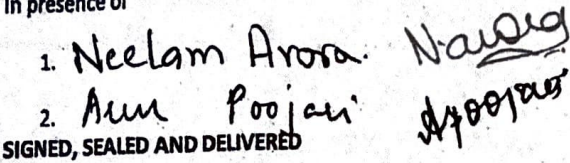 In presence of
1. Neelam Arora. N.arora
2. Arun Poojari Apoojari
SIGNED, SEALED AND DELIVERED